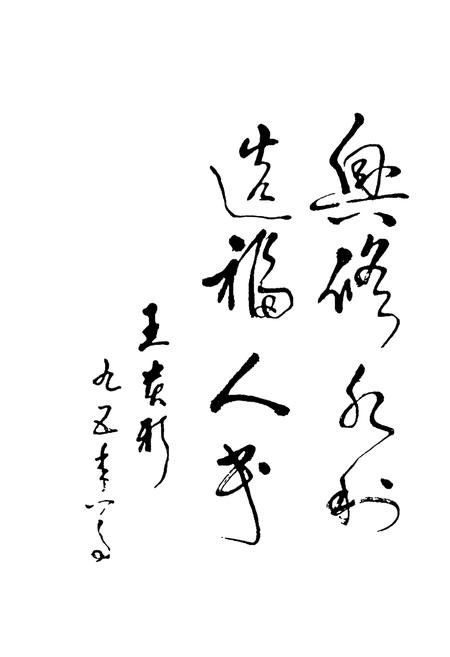 興修水利
造福人民
王
九五春